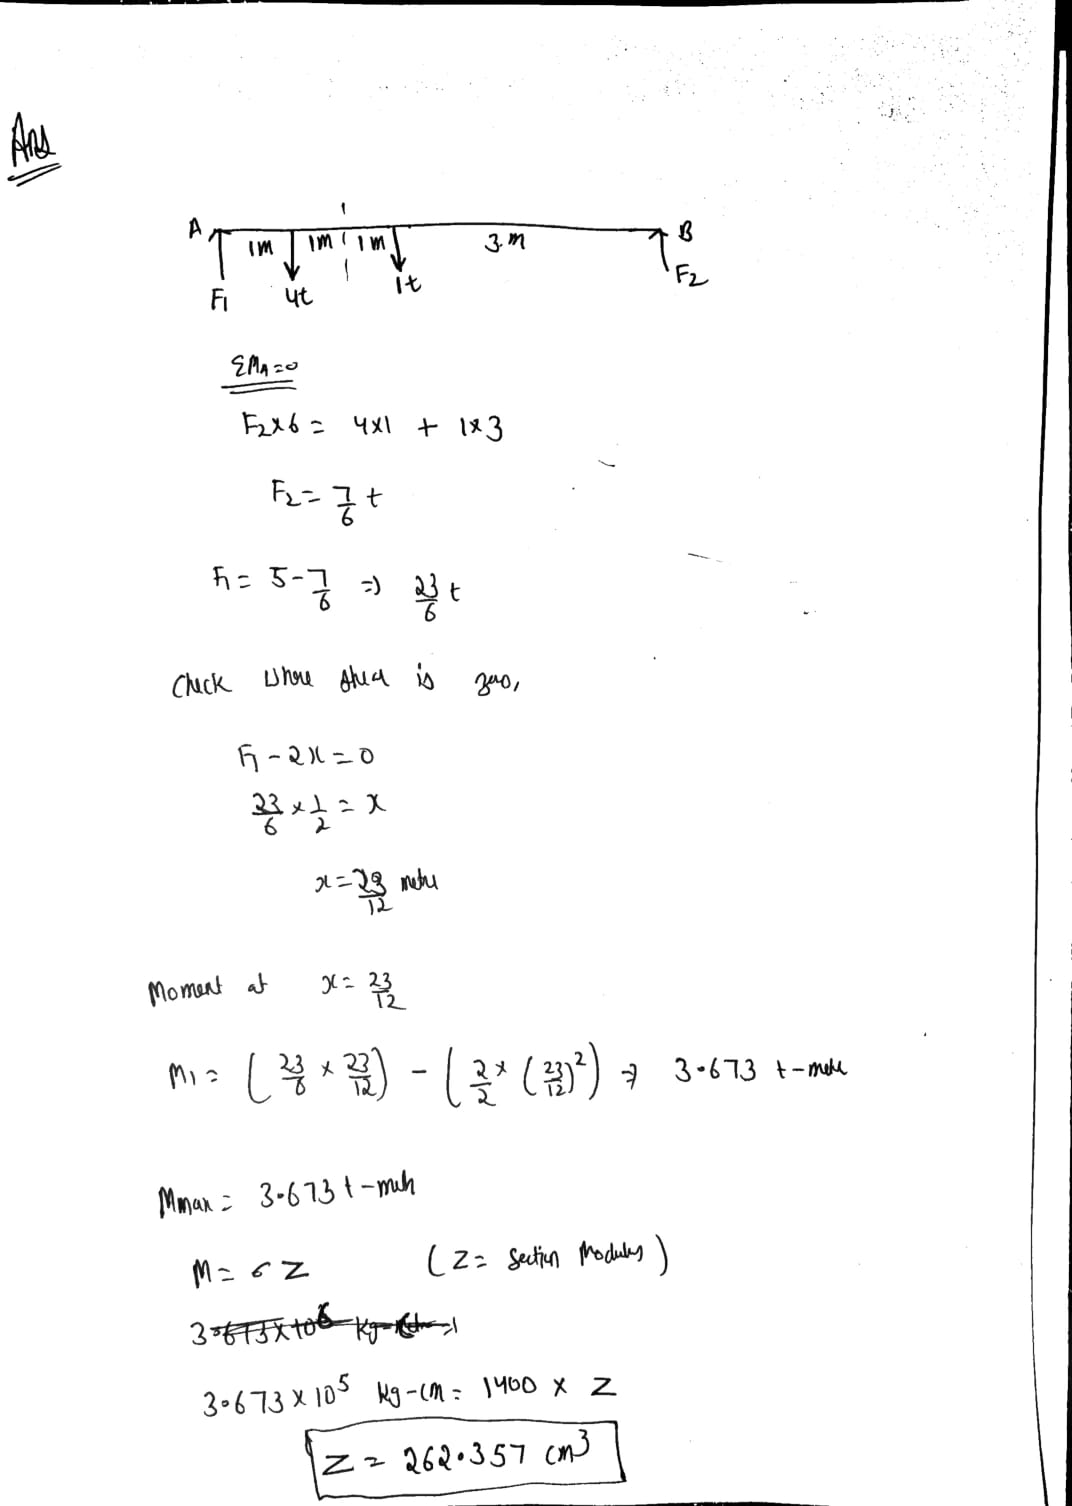 Ans
A 1m 1m 1m 3.m B
F1 4t 1t F2
ΣMA=0
F2x6 = 4x1 + 1x3
F2 = 7/6 t
F1 = 5-7/6 => 23/6 t
Check where shear is zero,
F1 - 2x = 0
23/6 x 1/2 = x
x = 23/12 metre
Moment at x = 23/12
M1 = (23/6 x 23/12) - (2/2 x (23/12)²) => 3.673 t-metre
Mmax = 3.673 t-meter
M = σ Z (Z = Section Modulus)
3.673 x 10⁵ kg-cm = 1400 x Z
Z = 262.357 cm³